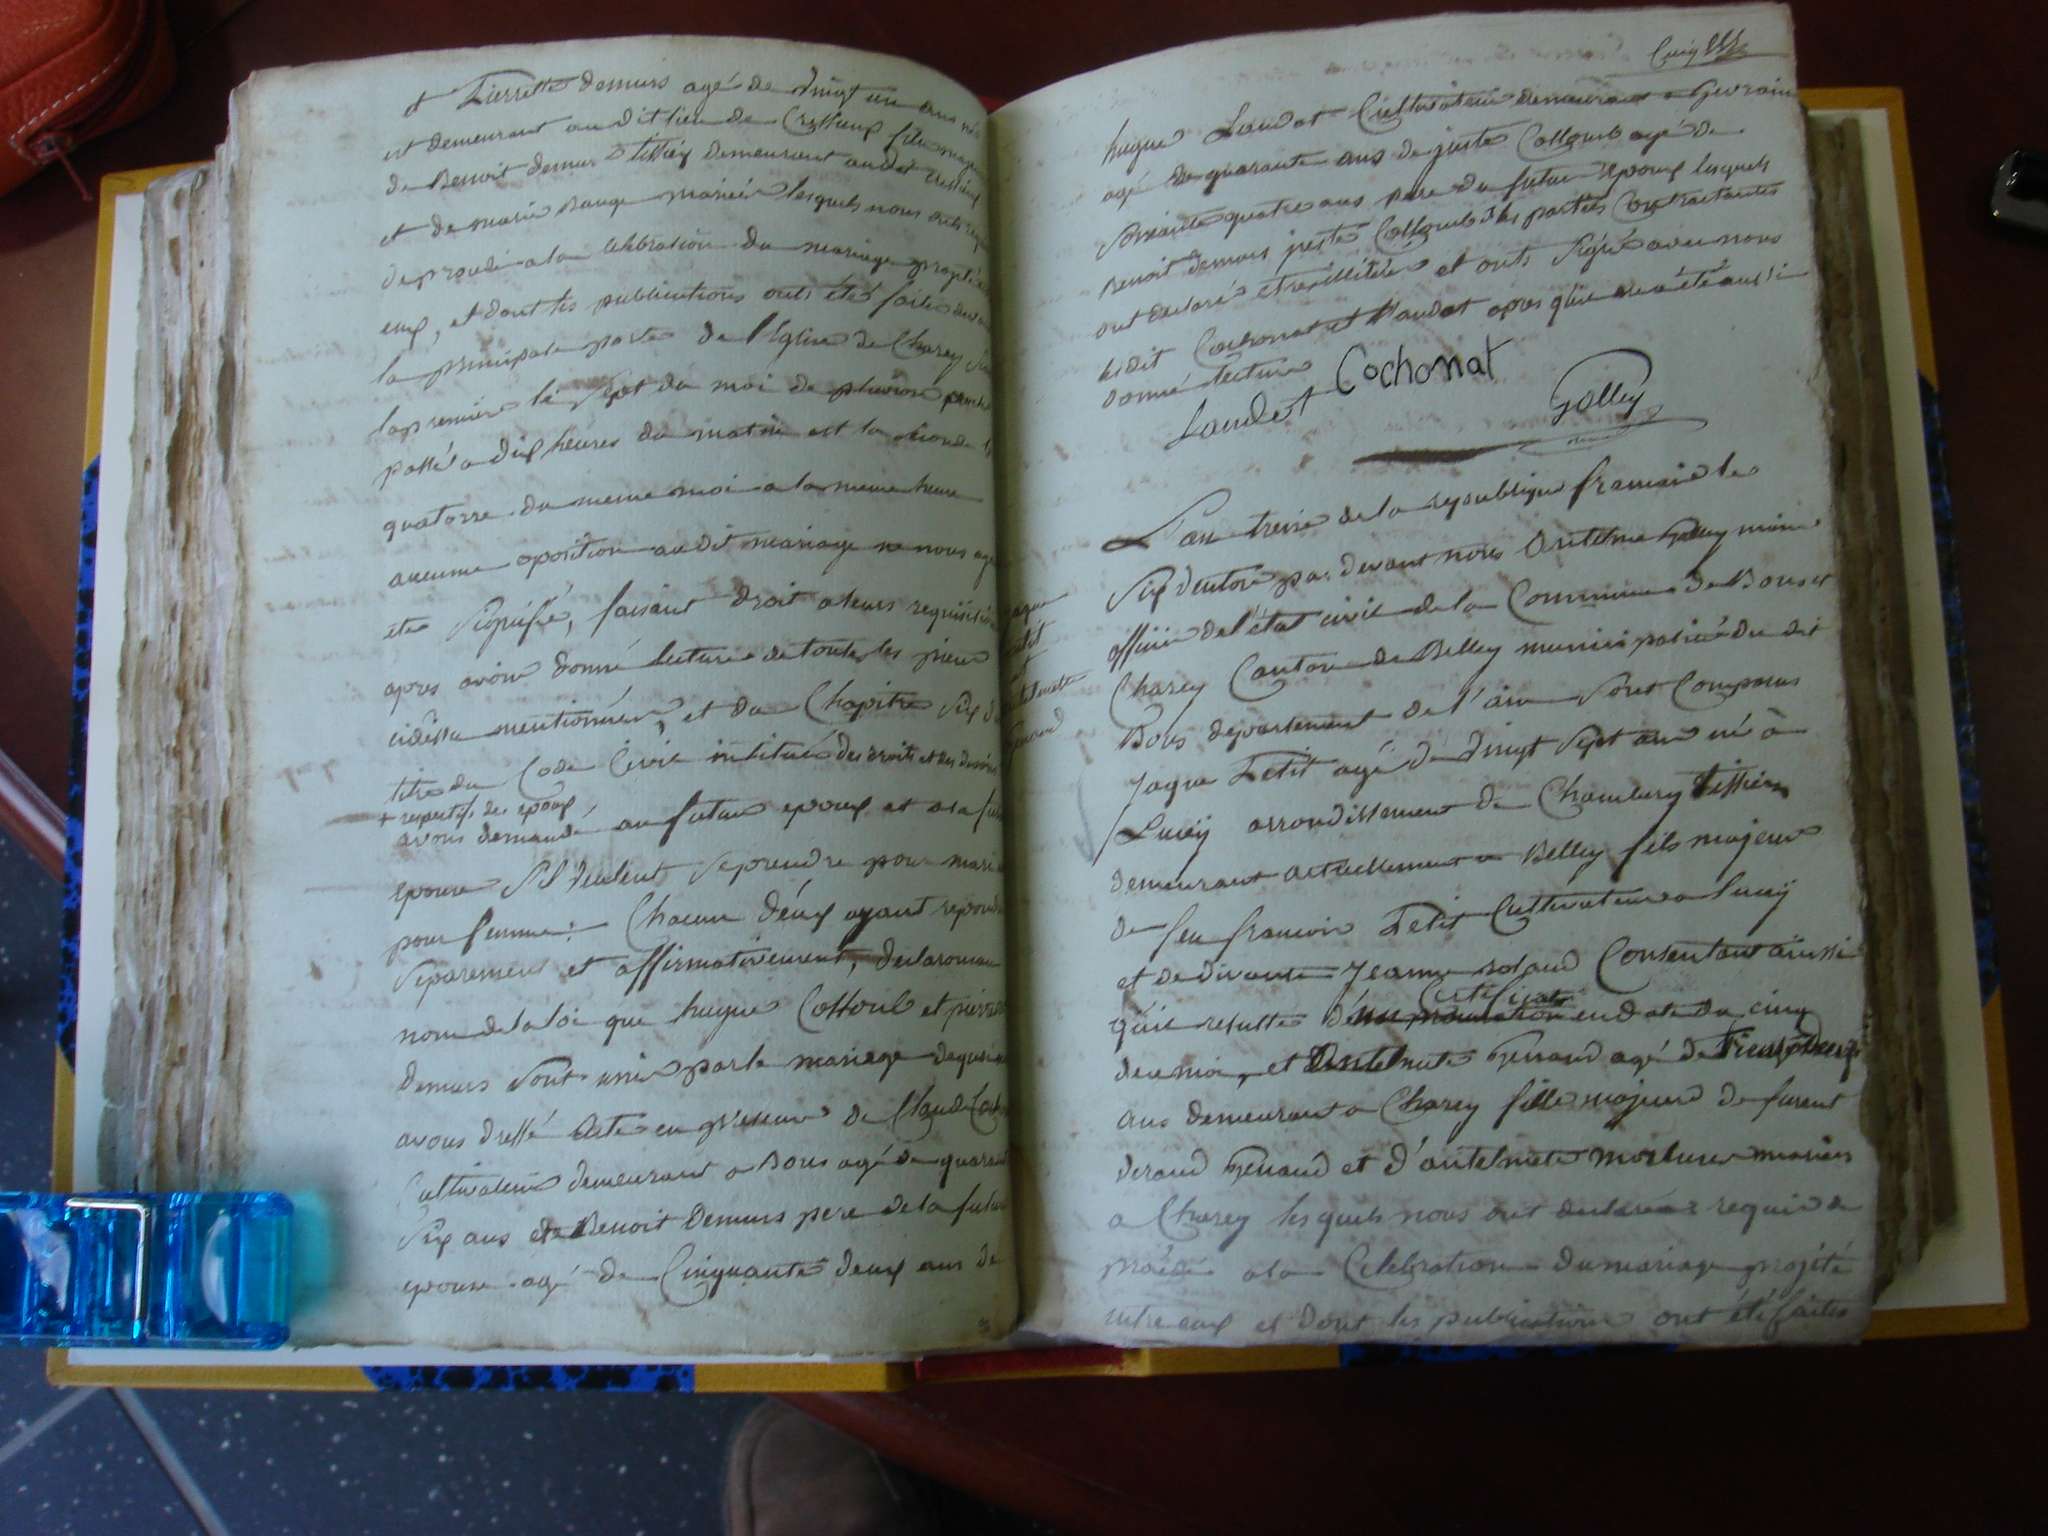 et Pierrette demurs agé de vingt un ans né
et demeurant au dit lieu de Cressieux fille majeur
de Benoit demurs tissiey demeurant audit Cressieux
et de marie Bauge mariés lesquels nous onts requi
de procedé a la celebration du mariage projeté
eux, et dont les publications onts été faite devan
la principale porte de l'Eglise de Charey
la premiere le sept du moi de pluviose
passé a dix heures du matin est la seconde le
quatorze du meme moi a la meme heure
aucune oposition au dit mariage ne nous aye
été signifié, faisant droit a leurs requisitio
apres avoir donné lecture de toutes les piece
cidessu mentionnées, et du Chapitre six du
titre du Code Civil intitulé des droits et des devoirs
+ respectifs des epoux
avons demandé au futur epoux et a la futu
epouse s'il veulent se prendre pour mari
pour femme: Chacun d'eux ayant repondu
separement et affirmativement, declarons au
nom de la loi que hugue Cottoub et pierrette
demurs sont unis par le mariage de quoi
avons dressé acte en presence de Claude Coch
Cultivateur demeurant a Bons agé de quarant
six ans de Benoit Demurs pere de la future
epouse agé de Cinquante deux ans de
hugue Laudet Cultivateur demeurant a Gevrain
agé de quarante ans de juste Cottoub agé de
soixante quatre ans pere du futur Epoux lesquels
Benoit demurs juste Cottoub et les parties Contractantes
ont declaré etre illitéré et onts signé avec nous
lesdit Cochonat et Laudet apres qu'il en a été aussi
donné lecture
Laudet Cochonat Golley
L'an treize de la republique francaise le
six ventose par devant nous Antelme Golley maire
officier de l'état civil de la Commune de Bons et
Charey Canton de Belley municipalité du dit
Bons departement de l'ain sont Comparus
Jaque Petit agé de vingt sept an né à
Lucey arrondissement de Chambery tissier
demeurant actuellement a Belley fils majeur
de feu francois Petit Cultivateur a lucey
et de vivante Jeanne Consentant ainssi
certificat
qu'il resulte d'un en date du cinq
de ce moi, et Antelmete agé de
ans demeurant a Charey fille majeur de
et d'antelmete mariés
a Charey lesquels nous ont declaré requis de
procédé a la Celebration du mariage projété
entre eux et dont les publications ont été faites